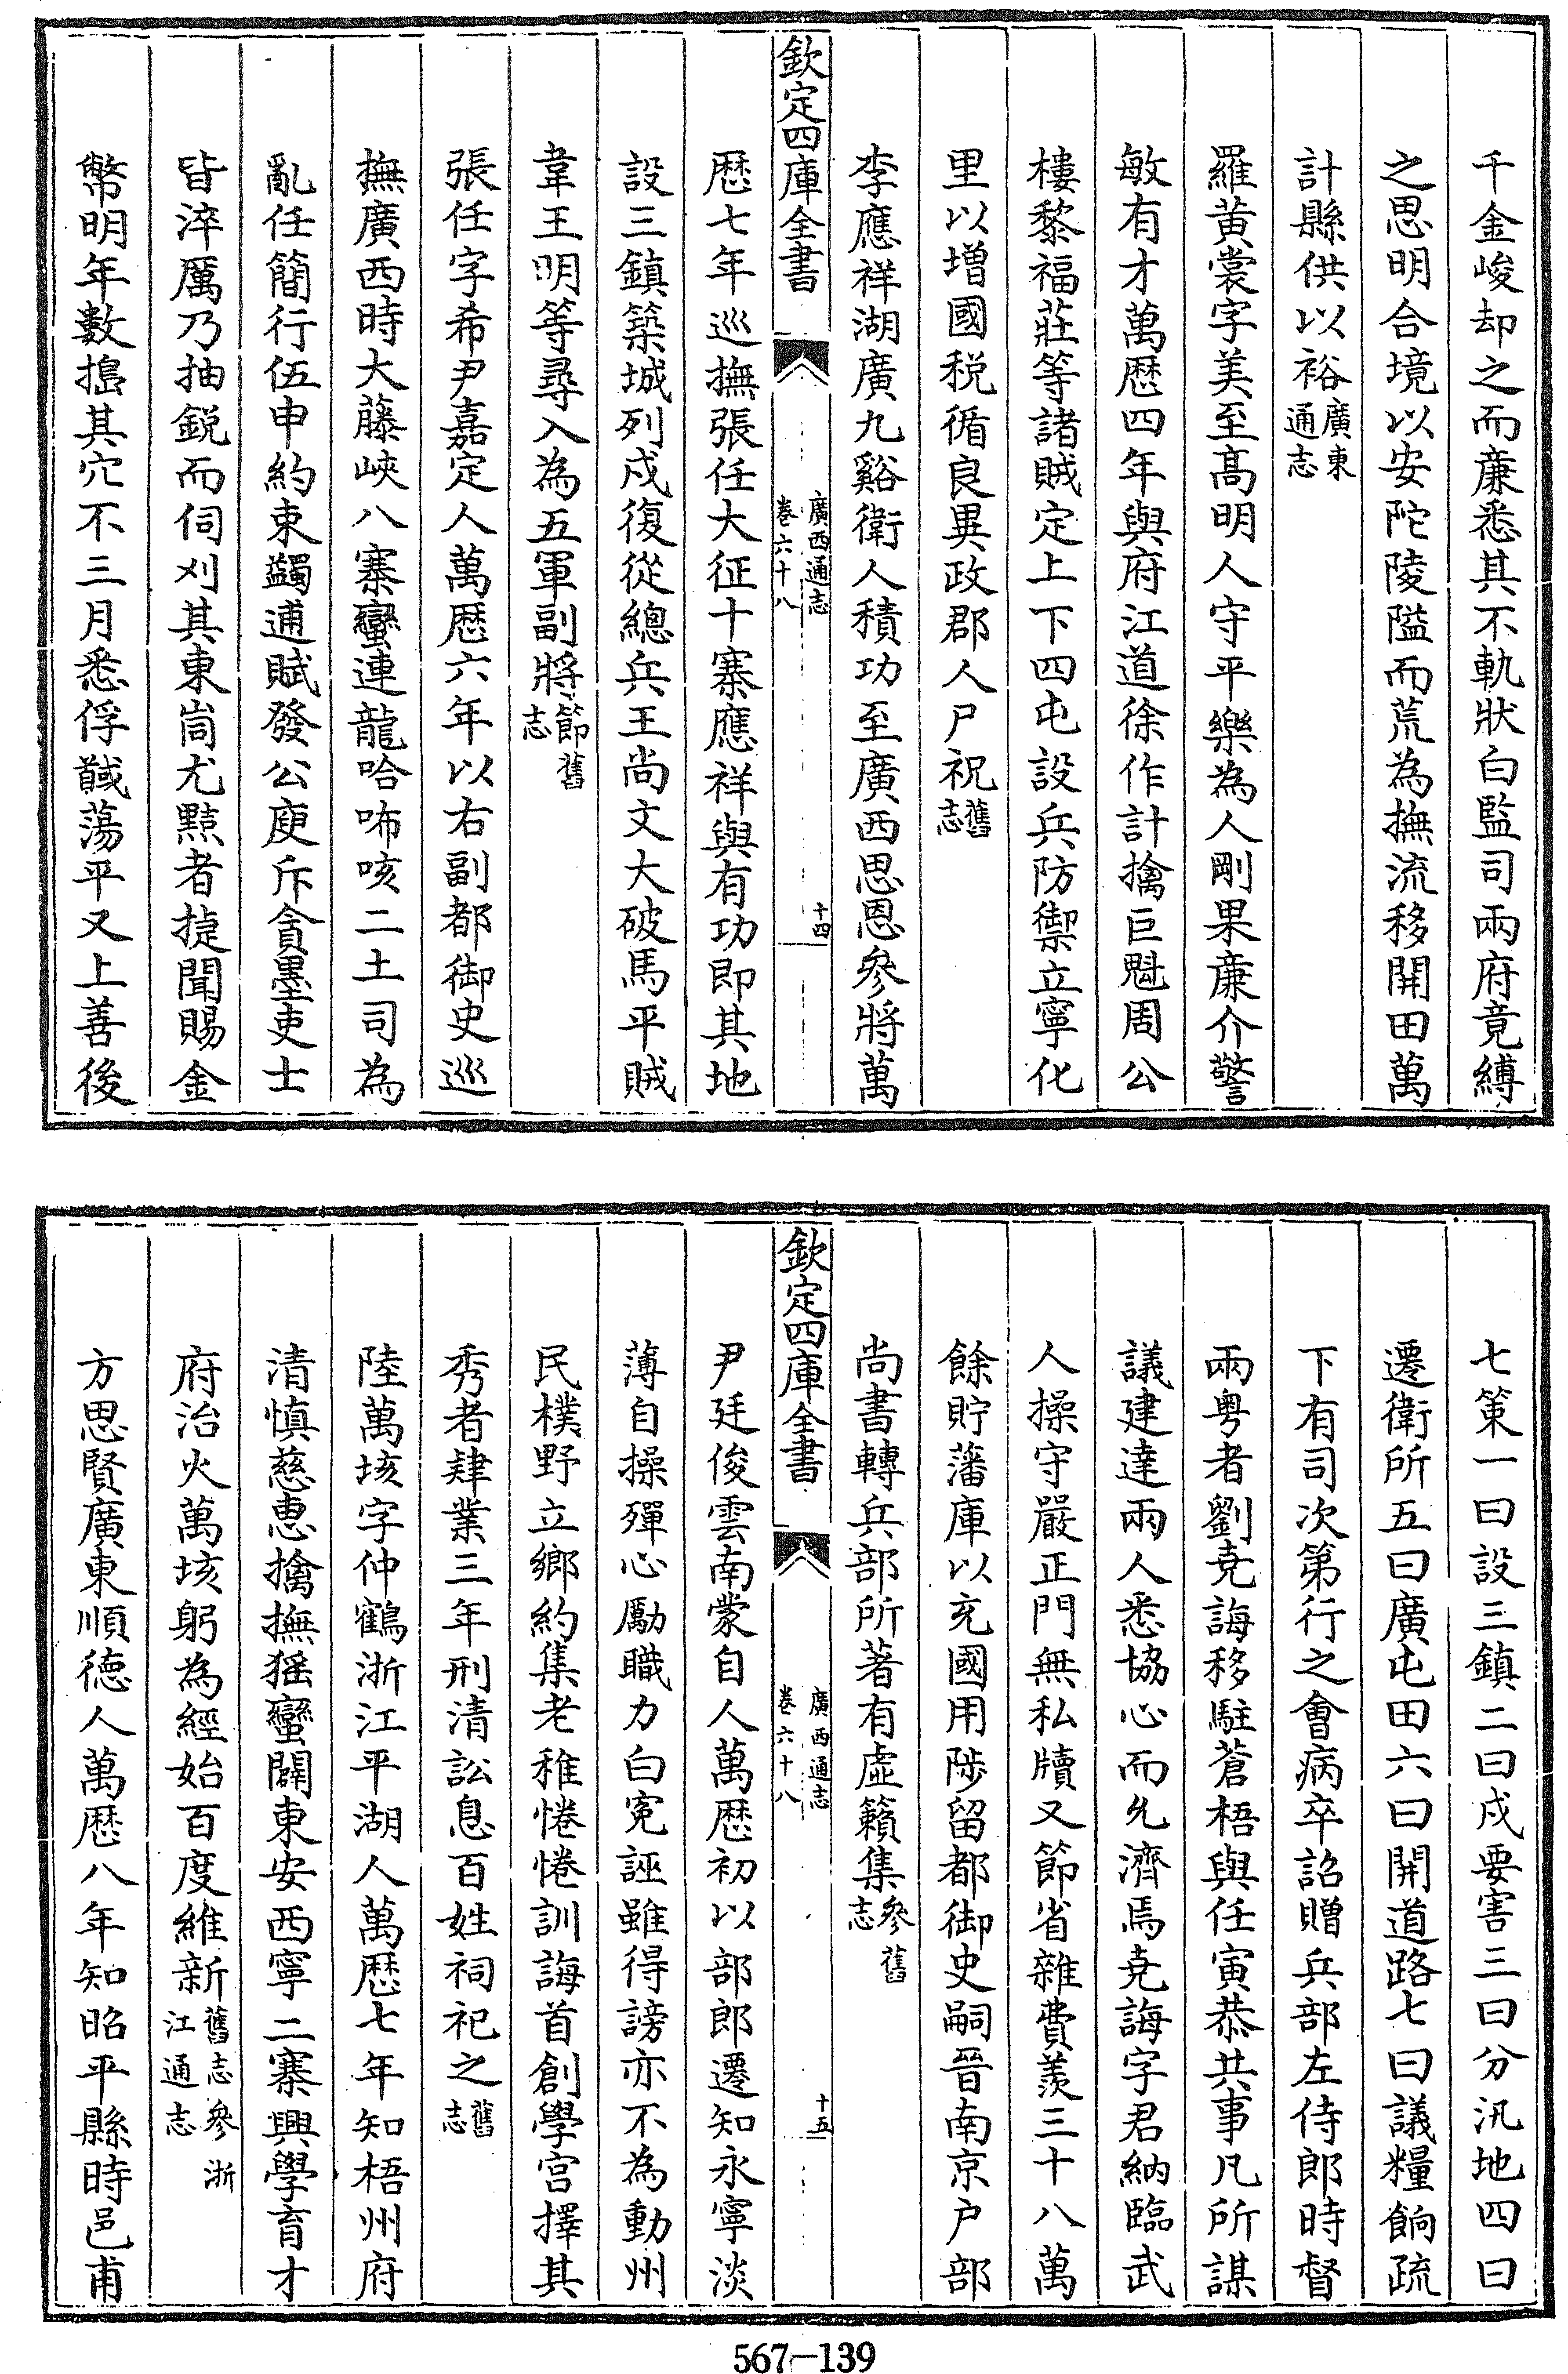 千金峻却之而廉悉其不軌狀白監司兩府竟縛
之思明合境以安陀陵隘而荒為撫流移開田萬
計縣供以裕廣東通志
羅黄裳字美至髙明人守平樂為人剛果廉介警
敏有才萬厯四年與府江道徐作計擒巨魁周公
樓黎福莊等諸賊定上下四屯設兵防禦立寧化
里以增國税循良異政郡人尸祝舊志
李應祥湖廣九谿衛人積功至廣西思恩參將萬
欽定四庫全書
廣西通志
卷六十八
十四
厯七年巡撫張任大征十寨應祥與有功即其地
設三鎮築城列戍復從總兵王尚文大破馬平賊
韋王明等尋入為五軍副將節舊志
張任字希尹嘉定人萬厯六年以右副都御史巡
撫廣西時大藤峽八寨蠻連龍哈咘咳二土司為
亂任簡行伍申約束蠲逋賦發公庾斥貪墨吏士
皆淬厲乃抽鋭而伺刈其東峝尤黠者捷聞賜金
幣明年數搗其穴不三月悉俘馘蕩平又上善後
七策一曰設三鎮二曰戍要害三曰分汛地四曰
遷衛所五曰廣屯田六曰開道路七曰議糧餉疏
下有司次第行之會病卒詔贈兵部左侍郎時督
兩粤者劉堯誨移駐蒼梧與任寅恭共事凡所謀
議建達兩人悉協心而允濟焉堯誨字君納臨武
人操守嚴正門無私牘又節省雜費羨三十八萬
餘貯藩庫以充國用陟留都御史嗣晉南京户部
尚書轉兵部所著有虛籟集參舊志
欽定四庫全書
廣西通志
卷六十八
十五
尹廷俊雲南蒙自人萬厯初以部郎遷知永寧淡
薄自操殫心勵職力白寃誣雖得謗亦不為動州
民樸野立鄉約集老稚惓惓訓誨首創學宮擇其
秀者肄業三年刑清訟息百姓祠祀之舊志
陸萬垓字仲鶴浙江平湖人萬厯七年知梧州府
清慎慈恵擒撫猺蠻闢東安西寧二寨興學育才
府治火萬垓躬為經始百度維新舊志參浙江通志
方思賢廣東順徳人萬厯八年知昭平縣時邑甫
567—139